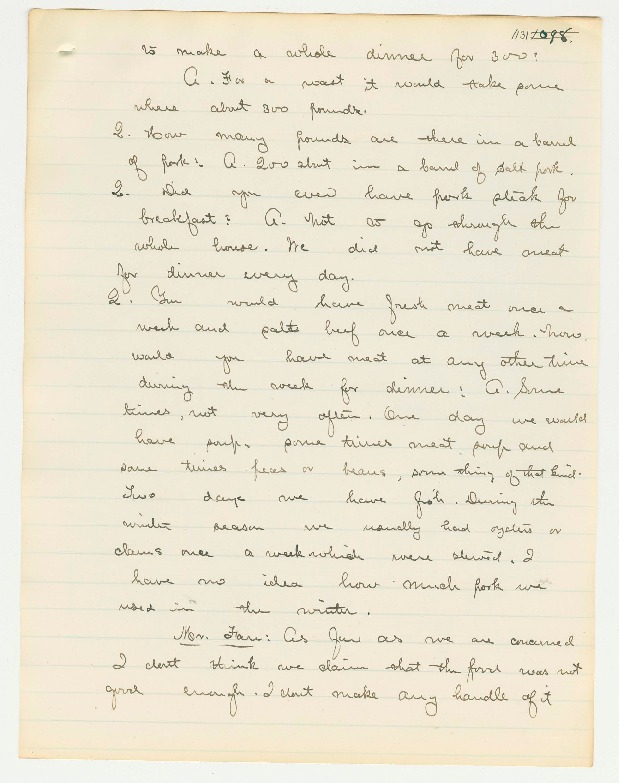 1131 1098.
to make a whole dinner for 300?
A. For a roast it would take some
where about 300 pounds.
Q. How many pounds are there in a barrel
of pork? A. 200 shut in a barrel of salt pork.
Q. Did you ever have pork steak for
breakfast? A. Not to go through the
whole house. We did not have meat
for dinner every day.
Q. You would have fresh meat once a
week and salt beef once a week. Now
would you have meat at any other time
during the week for dinner? A. Some
times, not very often. One day we would
have soup, some times meat soup and
some times peas or beans, some thing of that kind.
Two days we have fish. During the
winter season we usually had oysters or
clams once a week which were stewed. I
have no idea how much pork we
used in the winter.
Mr. : As far as we are concerned
I don't think we claim that the food was not
good enough. I don't make any handle of it